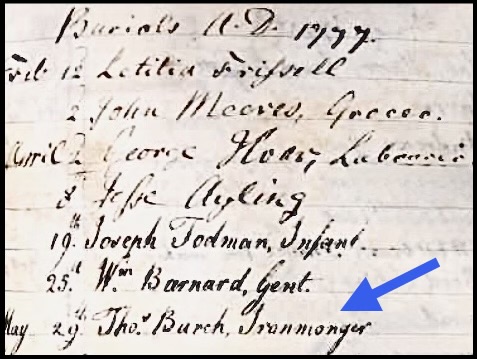 Burials A.D. 1777.
Feb 12 Letitia Frissell
2 John Meeres, Grocer.
April 2 George Hoar, Labourer
8 Jesse Ayling
19th Joseph Todman, Infant.
25th Wm Barnard, Gent.
May 29th Thos. Burch, Ironmonger